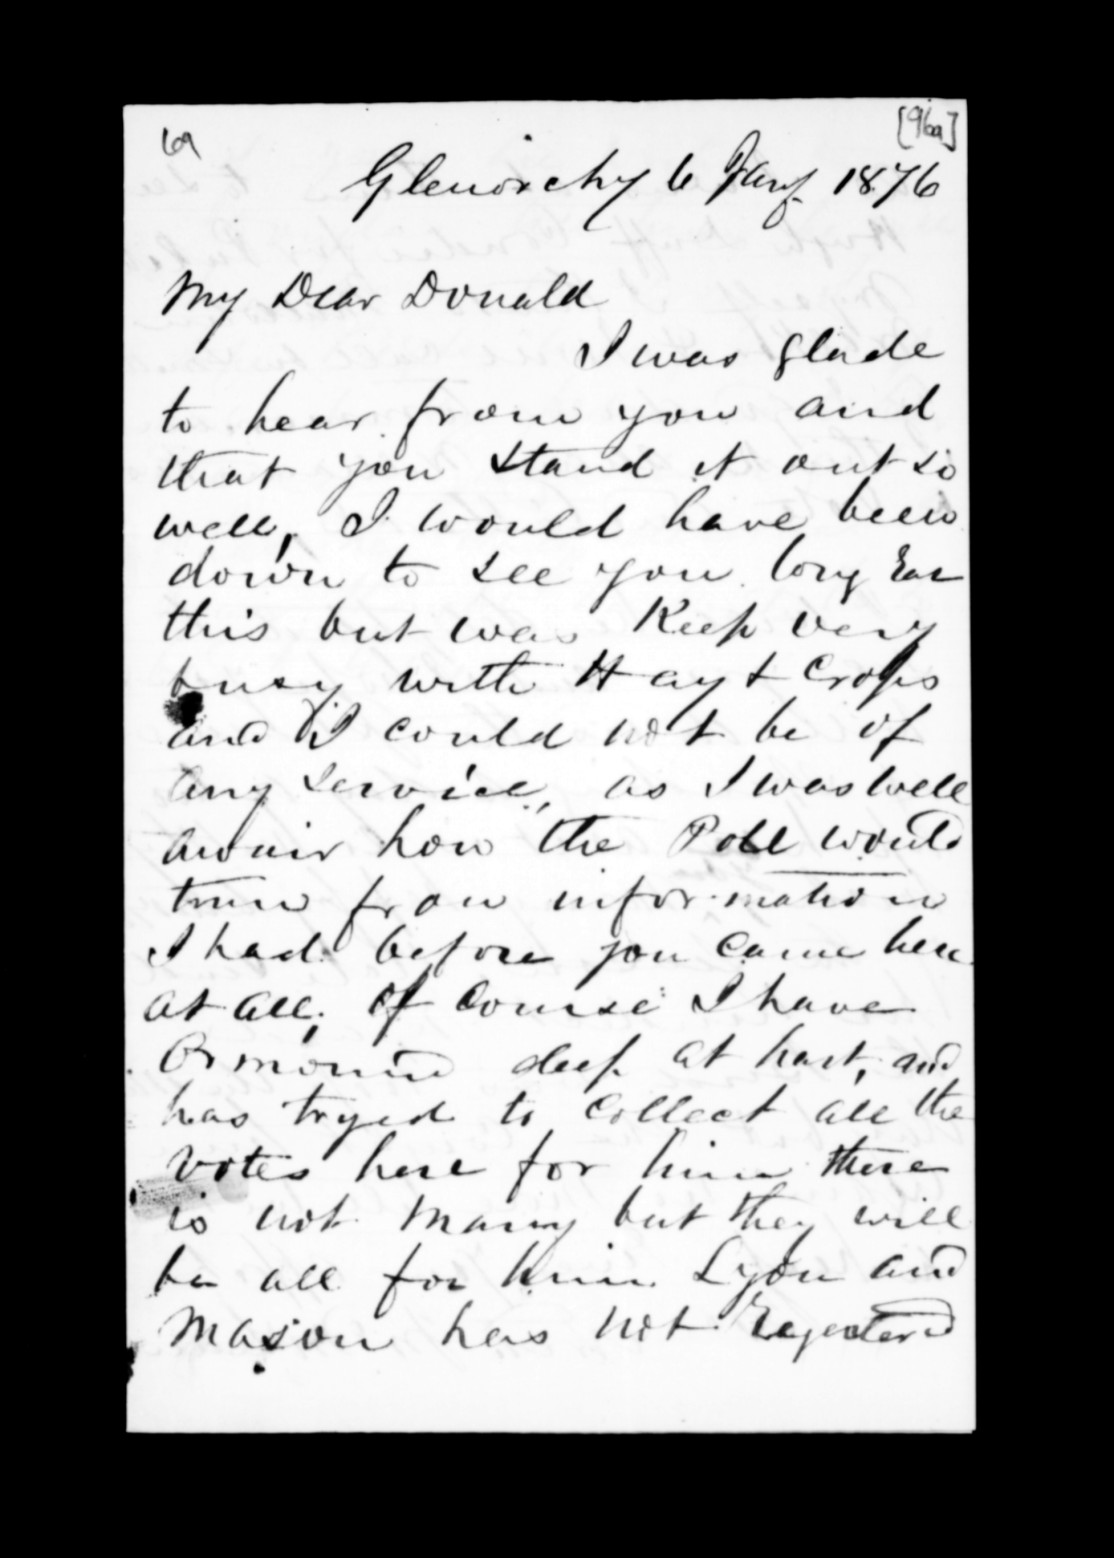 69
[96a]
Glenorchy 6 Jany. 1876
My Dear Donald
I was glade
to hear from you and
that you stand it out so
well, I would have been
down to see you long Ear
this but was Keep very
busy with Hay & Crops
and I could not be of
any service, as I was well
awair how the Poll would
trun from information
I had before you came here
at all; Of Course I have
Ormound deep at hart, and
has tryed to Collect all the
Votes here for him there
is not Many but they will
be all for him. Lyon and
Mason has not Regestered